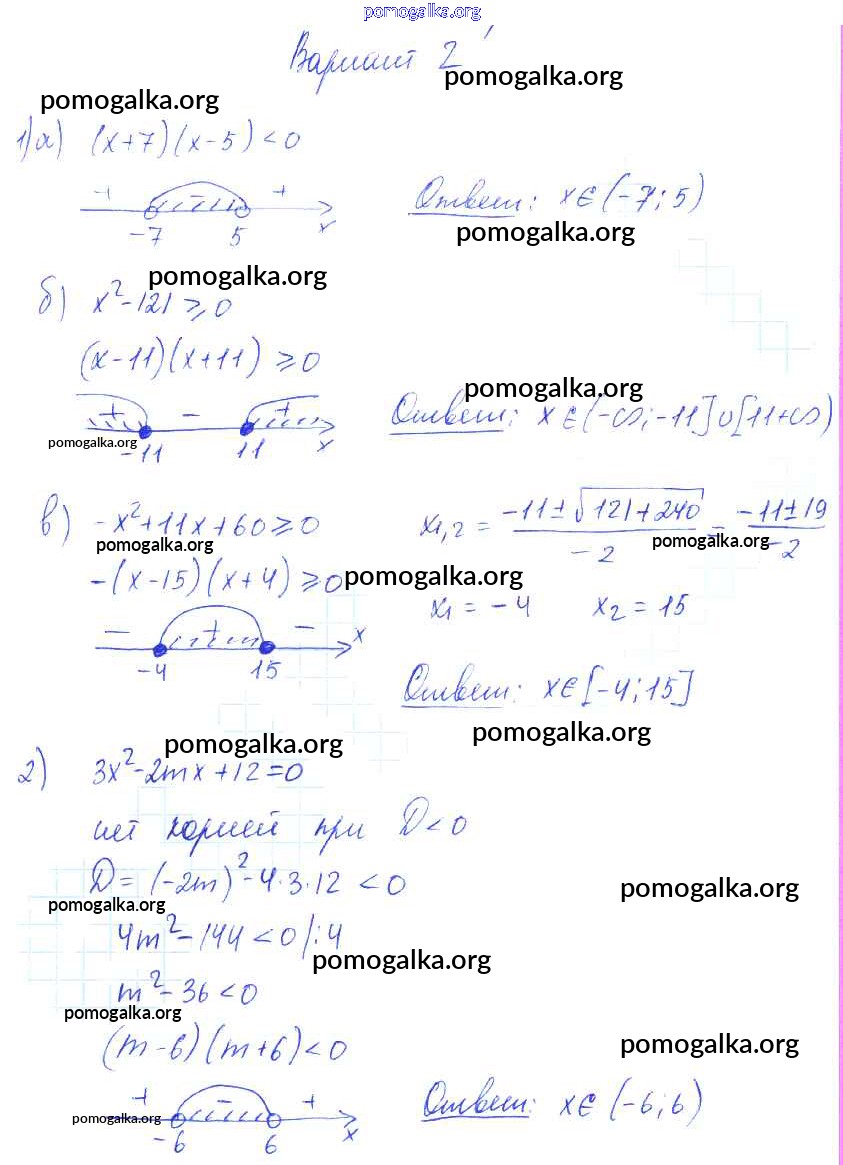 pomogalka.org
Вариант 2
pomogalka.org
pomogalka.org
1) а) (x+7)(x-5)<0
+ - +
-7 5 x
Ответ: x∈(-7;5)
pomogalka.org
pomogalka.org
б) x²-121≥0
(x-11)(x+11)≥0
pomogalka.org
+ - +
-11 11 x
Ответ: x∈(-∞;-11]∪[11+∞)
pomogalka.org
в) -x²+11x+60≥0
x₁,₂ = (-11±√(121+240))/(-2) = (-11±19)/(-2)
pomogalka.org
pomogalka.org
-(x-15)(x+4)≥0
pomogalka.org
x₁=-4 x₂=15
- + - x
-4 15
Ответ: x∈[-4;15]
pomogalka.org
pomogalka.org
2) 3x²-2mx+12=0
нет корней при D<0
D=(-2m)²-4·3·12<0
pomogalka.org
pomogalka.org
4m²-144<0 |:4
pomogalka.org
m²-36<0
pomogalka.org
(m-6)(m+6)<0
pomogalka.org
+ - +
pomogalka.org
-6 6 x
Ответ: x∈(-6;6)